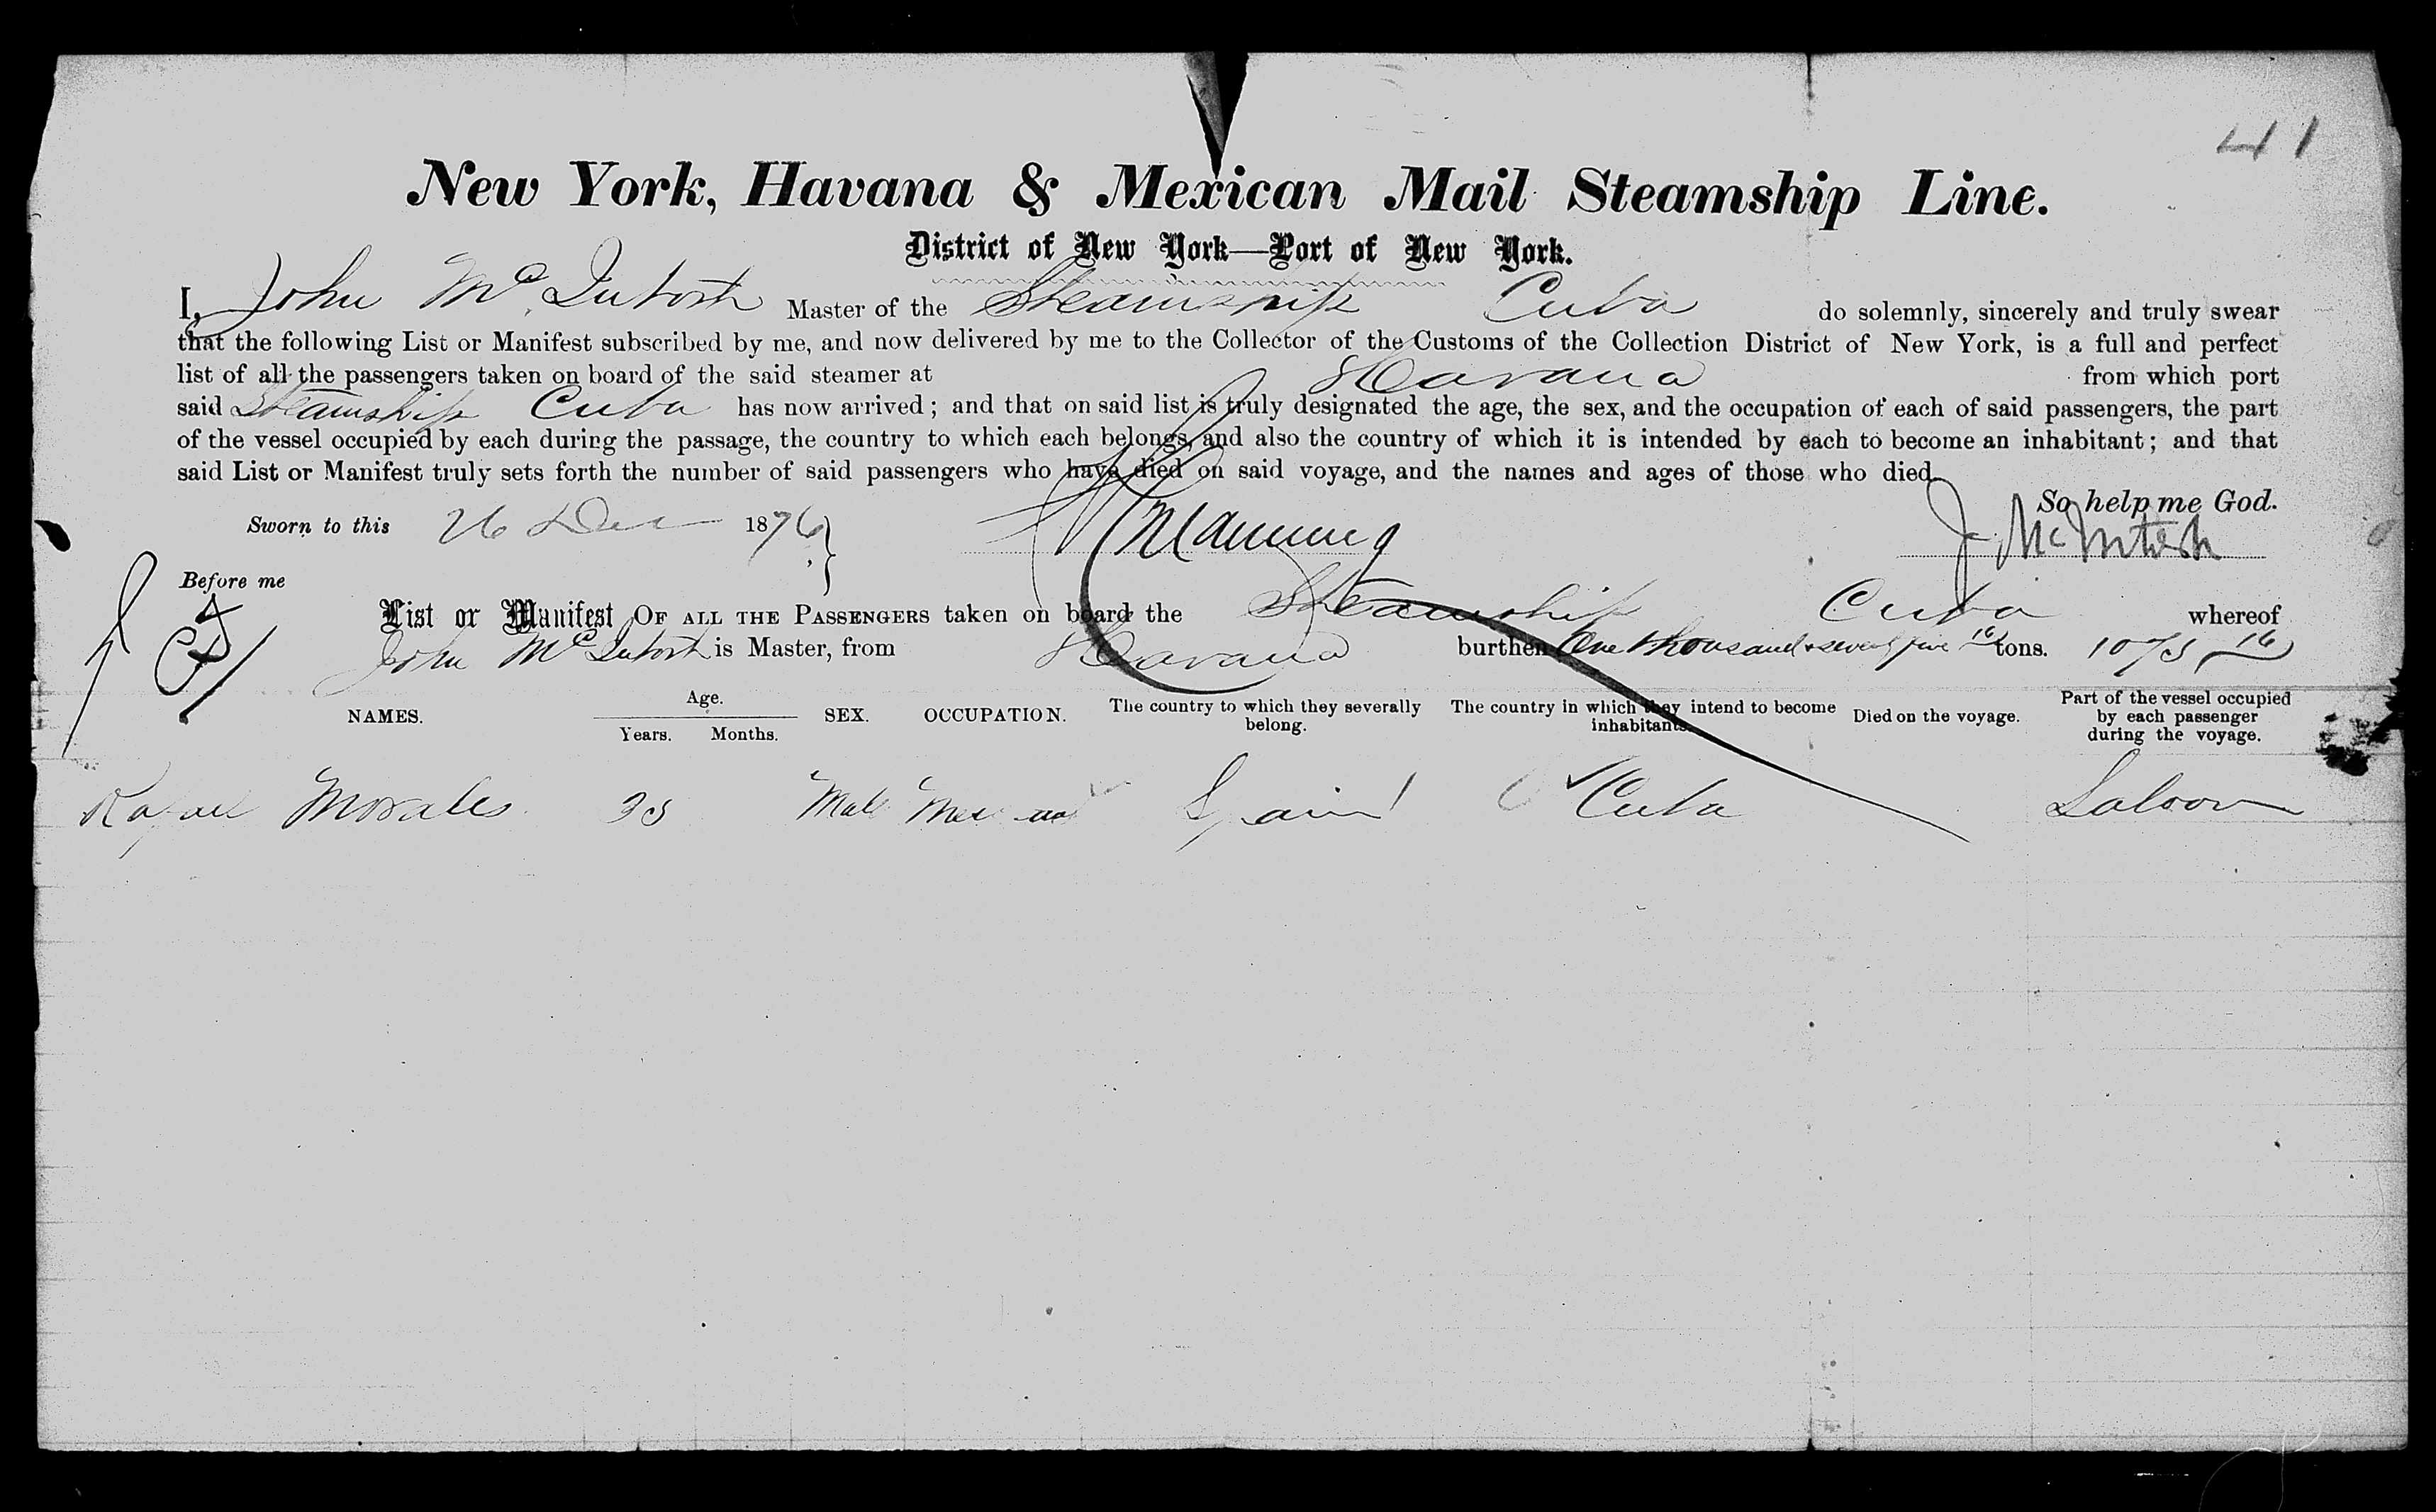 41
New York, Havana & Mexican Mail Steamship Line.
District of New York—Port of New York.
I, John Mc Intosh Master of the Steamship Cuba do solemnly, sincerely and truly swear
that the following List or Manifest subscribed by me, and now delivered by me to the Collector of the Customs of the Collection District of New York, is a full and perfect
list of all the passengers taken on board of the said steamer at Havana from which port
said Steamship Cuba has now arrived; and that on said list is truly designated the age, the sex, and the occupation of each of said passengers, the part
of the vessel occupied by each during the passage, the country to which each belongs, and also the country of which it is intended by each to become an inhabitant; and that
said List or Manifest truly sets forth the number of said passengers who have died on said voyage, and the names and ages of those who died.
So help me God.
Sworn to this 26 Dec 1876 Manning J McIntosh
Before me
List or Manifest OF ALL THE PASSENGERS taken on board the Steamship Cuba whereof
John Mc Intosh is Master, from Havana burthen One thousand & seventy five 16 tons. 1075 16
NAMES. Age. Years. Months. SEX. OCCUPATION. The country to which they severally belong. The country in which they intend to become inhabitants. Died on the voyage. Part of the vessel occupied by each passenger during the voyage.
Rafael Morales Male Spain Cuba Saloon